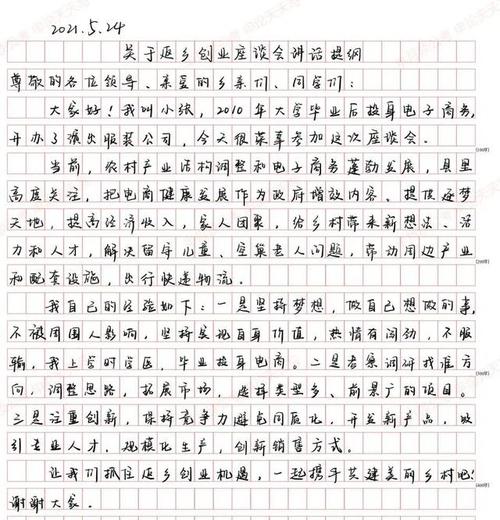 2021.5.24
关于返乡创业座谈会讲话提纲
尊敬的各位领导、亲爱的乡亲们、同学们：
大家好！我叫小张，2010年大学毕业后投身电子商务，
开办了演出服装公司，今天很荣幸参加这次座谈会。
当前，农村产业结构调整和电子商务蓬勃发展，县里
高度关注，把电商健康发展作为政府增效内容、提供逐梦
天地，提高经济收入，家人团聚，给乡村带来新想法、活
力和人才，解决留守儿童、空巢老人问题，带动周边产业
和配套设施，出行快递物流。
我自己的经验如下：一是坚持梦想，做自己想做的事，
不被周围人影响，坚持实现自身价值，热情有闯劲，不服
输，我上学时学医，毕业投身电商。二是考察调研找准方
向，调整思路，拓展市场，选择类型多、前景广的项目。
三是注重创新，保持竞争力避免同质化，开发新产品，吸
引专业人才，规模化生产，创新销售方式。
让我们抓住返乡创业机遇，一起携手共建美丽乡村吧！
谢谢大家。